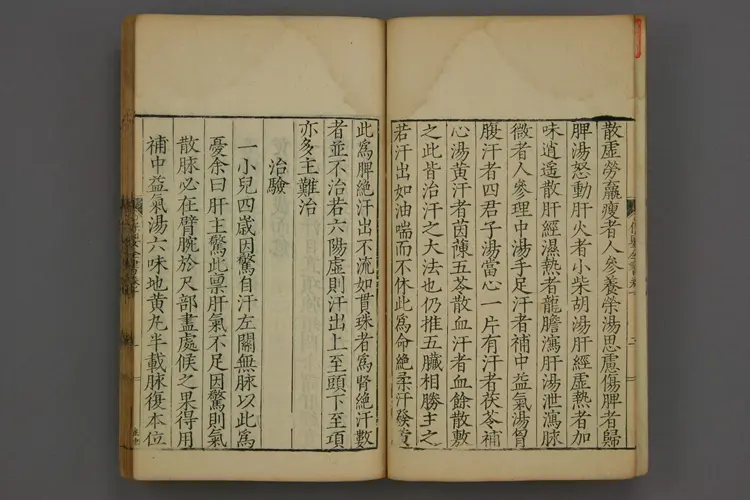 散虛勞羸瘦者人參養榮湯思慮傷脾者歸
脾湯怒動肝火者小柴胡湯肝經虛熱者加
味逍遥散肝經濕熱者龍膽瀉肝湯泄瀉脉
微者人參理中湯手足汗者補中益氣湯胷
腹汗者四君子湯當心一片有汗者茯苓補
心湯黄汗者茵蔯五苓散血汗者血餘散敷
之此皆治汗之大法也仍推五臟相勝主之
若汗出如油喘而不休此為命絶柔汗發黄
此為脾絶汗出不流如貫珠者為腎絶汗數
者並不治若六陽虛則汗出上至頭下至項
亦多主難治
治驗
一小兒四歲因驚自汗左關無脉以此為
憂余曰肝主驚此禀肝氣不足因驚則氣
散脉必在臂腕於尺部盡處候之果得用
補中益氣湯六味地黄丸半載脉復本位